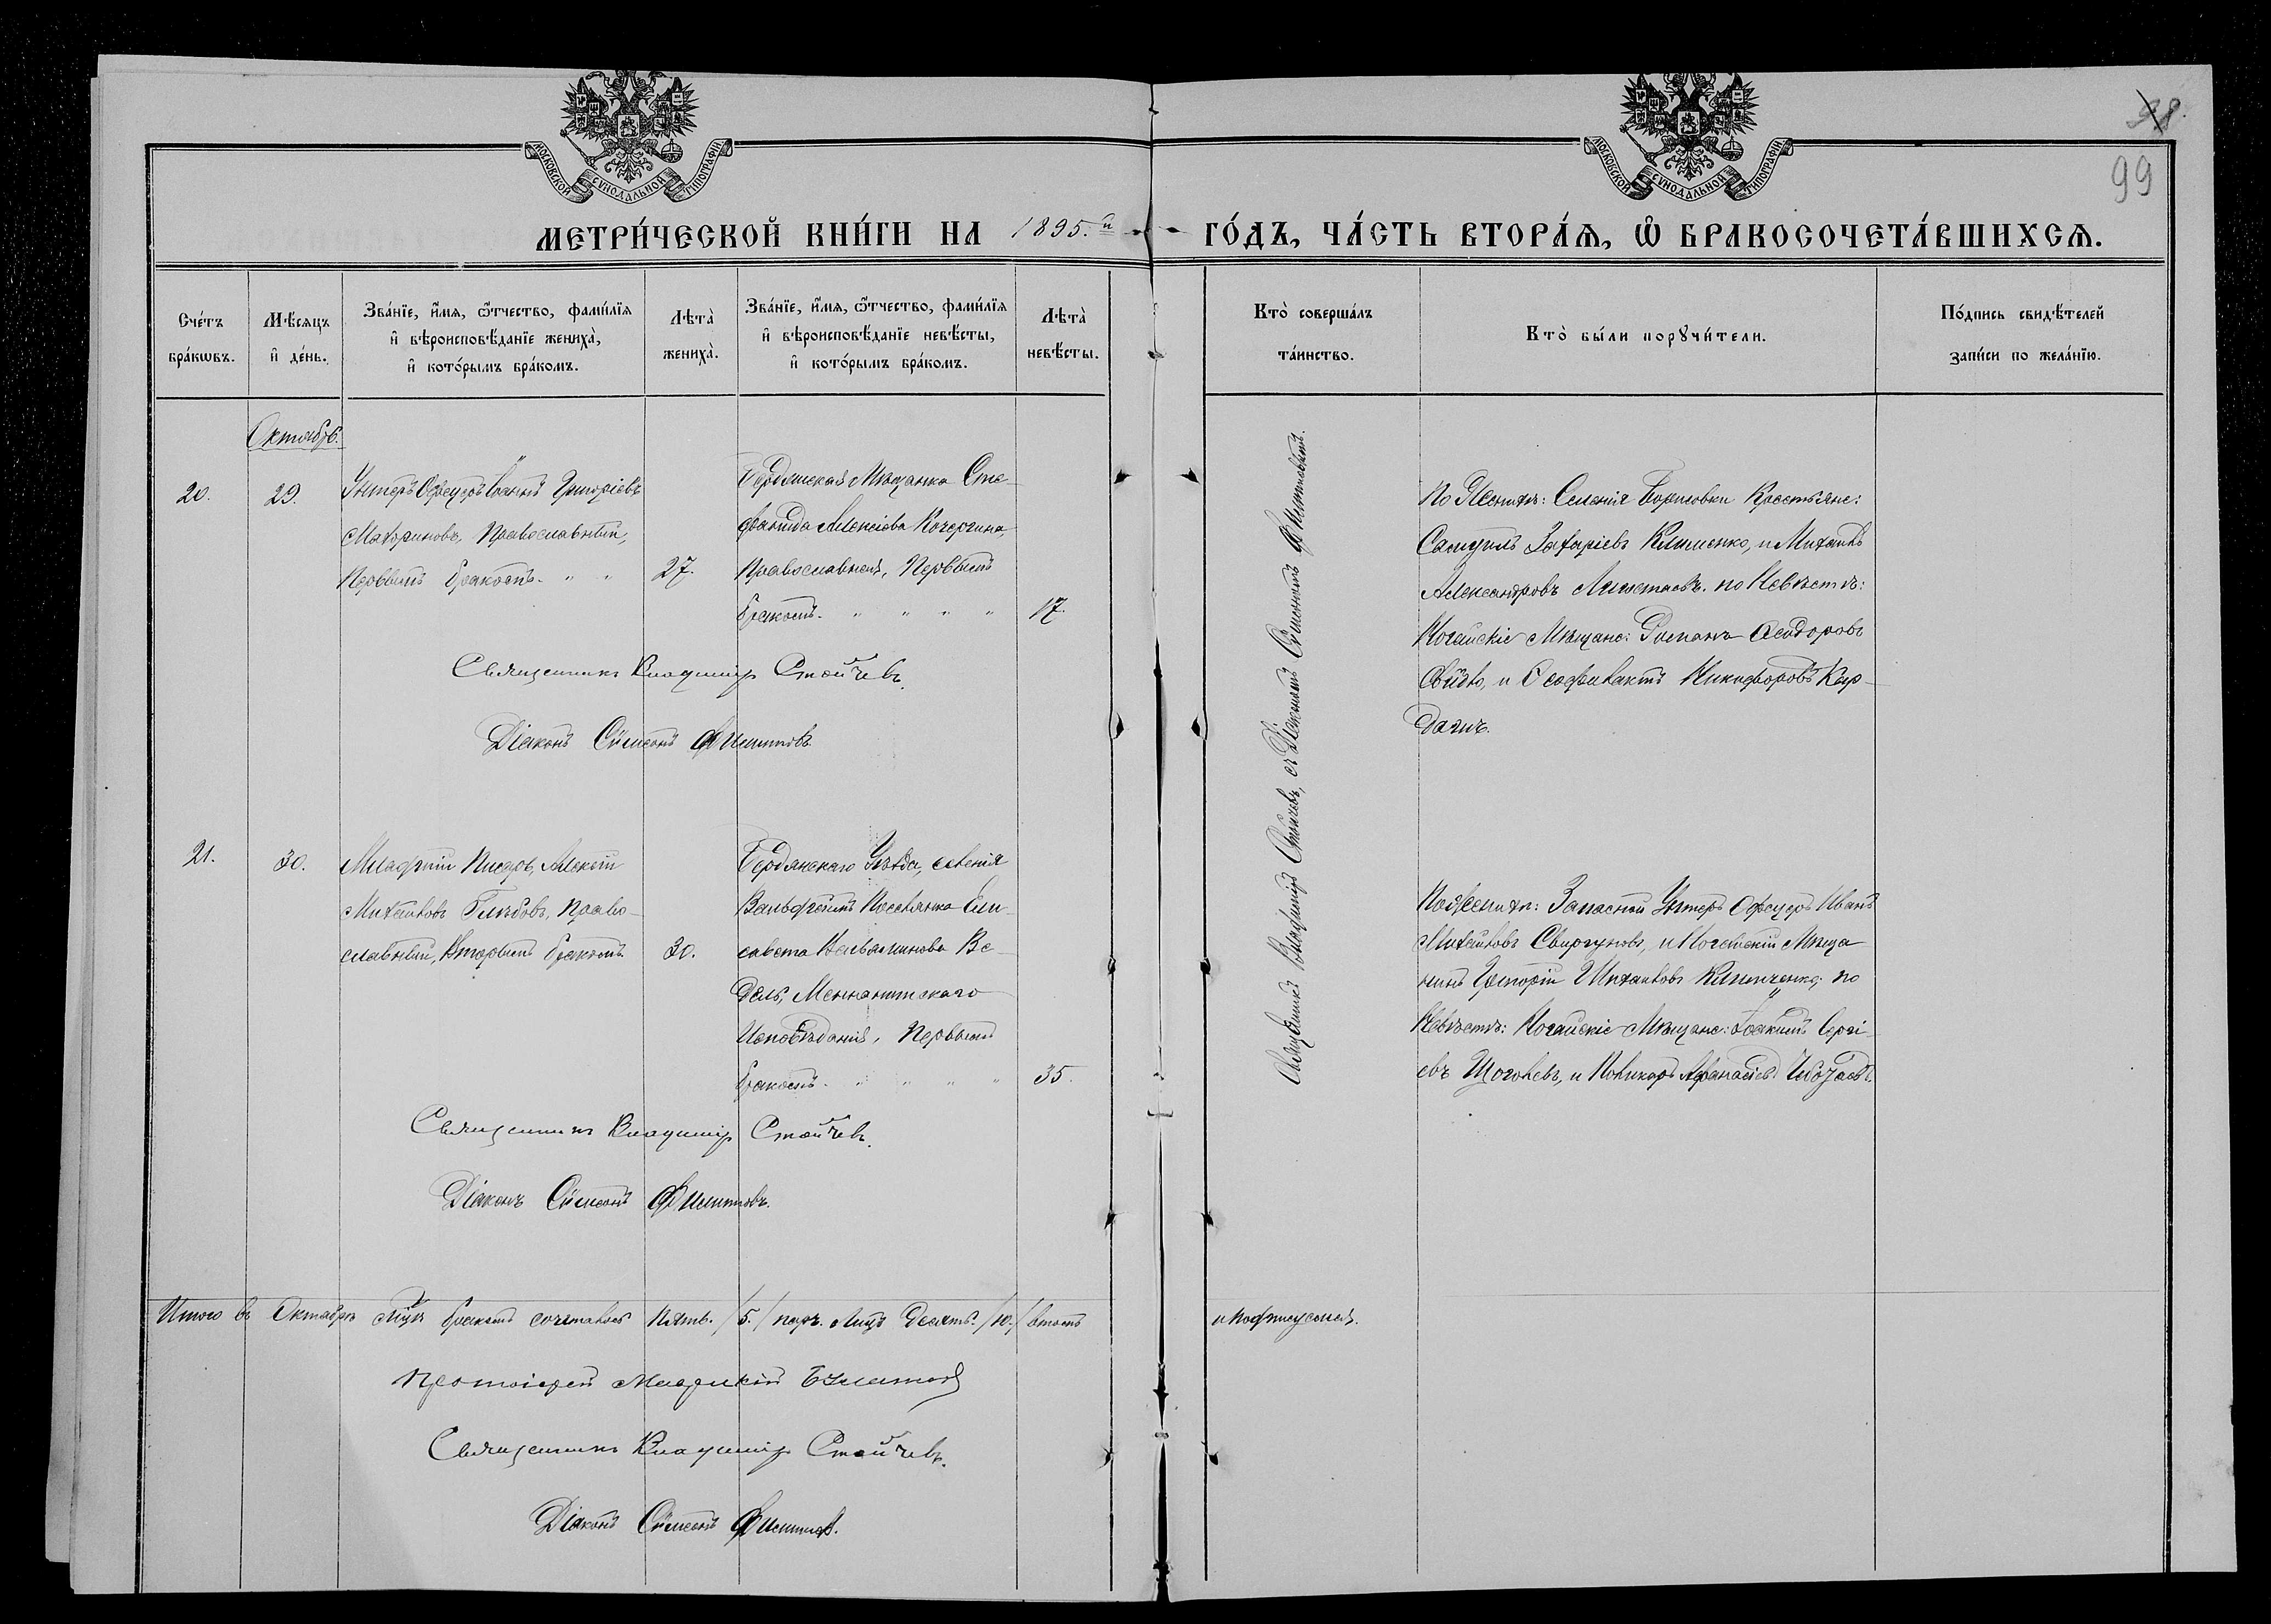 98.
99
МОСКОВСКОЙ СѴНОДАЛЬНОЙ ТИПОГРАФІИ
МОСКОВСКОЙ СѴНОДАЛЬНОЙ ТИПОГРАФІИ
МЕТРИ́ЧЕСКОЙ КНИ́ГИ НА 1895.й ГО́ДЪ, ЧА́СТЬ ВТОРА́Ѧ, Ѽ БРАКОСОЧЕТА́ВШИХСѦ.
Сче́тъ бра́кѡвъ.
Мѣ́сяцъ и҆ де́нь.
Зва́нїе, и҆́мя, ѻ҆́тчество, фами́лїя и҆ вѣроисповѣ́данїе жениха̀, и҆ кото́рымъ бра́комъ.
Лѣта̀ жениха̀.
Зва́нїе, и҆́мя, ѻ҆́тчество, фами́лїя и҆ вѣроисповѣ́данїе невѣ́сты, и҆ кото́рымъ бра́комъ.
Лѣта̀ невѣ́сты.
Кто̀ соверша́лъ та́инство.
Кто̀ бы́ли порꙋчи́тели.
По́дпись свидѣ́телей за́писи по жела́нїю.
Октябрь.
20.
29.
Унтеръ Офицеръ Іоаннъ Григоріевъ
Маториновъ, Православный,
Первымъ бракомъ. " "
27.
Бердянская Мѣщанка Сте-
фанида Алексіева Кочергина,
Православная, Первымъ
бракомъ. " " " "
17.
Священникъ Владиміръ Стойчевъ, съ Діакономъ Сѵмеономъ Филипповымъ.
По Женихѣ: Селенія Борисовки Крестьяне:
Самуилъ Захаріевъ Клименко, и Михаилъ
Александровъ по Невѣстѣ:
Ногайскіе Мѣщане: Романъ Ѳеодоровъ
и Ѳеофилактъ Никифоровъ Кар-
Священникъ Владиміръ Стойчевъ.
Діаконъ Сѵмеонъ Филипповъ.
21.
30.
Младшій Писарь, Алексій
Михаиловъ Глѣбовъ, Право-
славный, Вторымъ бракомъ.
30.
Бердянскаго Уѣзда, селенія
Вальдгеймъ Поселянка Ели-
савета Вильгелминова Ве-
дель, Меннонитскаго
Исповѣданія, Первымъ
бракомъ. " " " "
35.
По Женихѣ: Запасной Унтеръ Офицеръ Иванъ
Михаиловъ Свиргуновъ, и Ногайскій Мѣща-
нинъ Григорій Михаиловъ Климченко; по
Невѣстѣ: Ногайскіе Мѣщане: Іоакимъ Сергі-
евъ Щоголевъ, и Поликарпъ Аѳанасіевъ
Священникъ Владиміръ Стойчевъ.
Діаконъ Сѵмеонъ Филипповъ.
Итого въ Октябрѣ мцѣ бракомъ сочеталось Пять. /5./ паръ. Лицъ Десять. /10./ втомъ и подписуемся.
Протоіерей
Священникъ Владиміръ Стойчевъ.
Діаконъ Сѵмеонъ Филипповъ.